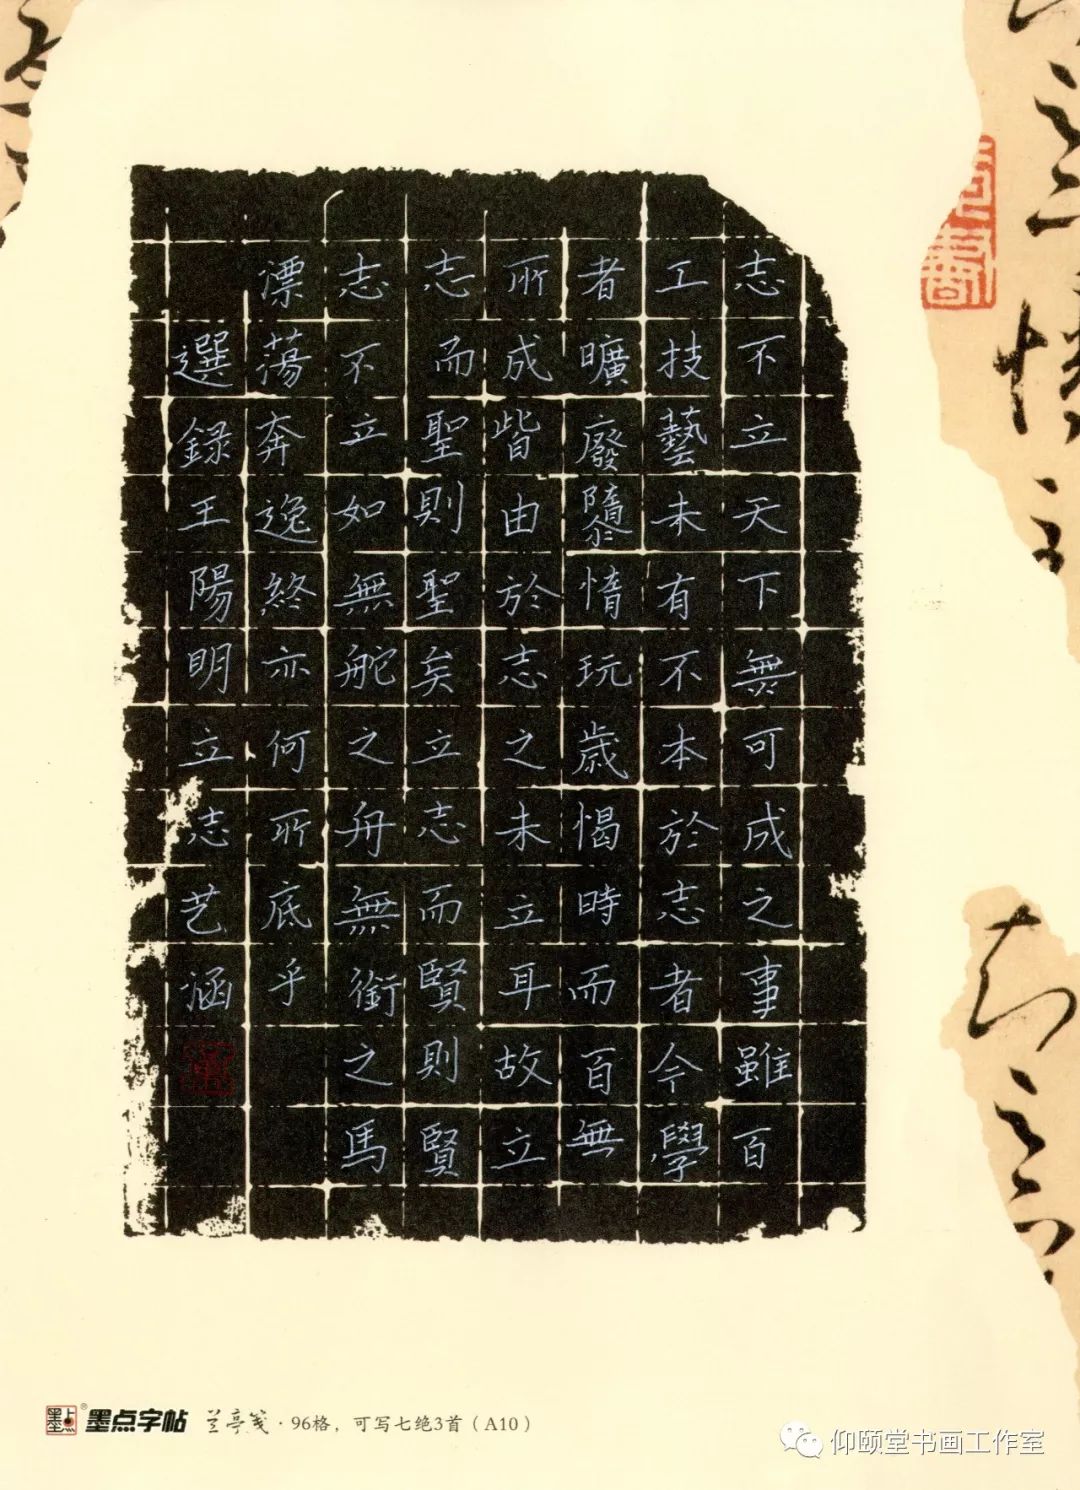 志不立天下無可成之事雖百
工技藝未有不本於志者今學
者曠廢隳惰玩歲愒時而百無
所成皆由於志之未立耳故立
志而聖則聖矣立志而賢則賢
志不立如無舵之舟無銜之馬
漂蕩奔逸終亦何所底乎
選録王陽明立志艺涵
墨点字帖 兰亭笺·96格，可写七绝3首（A10）
仰颐堂书画工作室